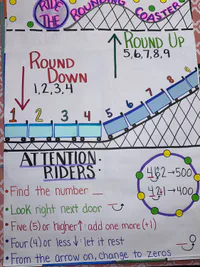 RIDE THE ROUNDING COASTER
ROUND UP
5,6,7,8,9
ROUND DOWN
1,2,3,4
1 2 3 4 5 6 7 8 9
ATTENTION RIDERS:
• Find the number
• Look right next door
• Five (5) or higher↑ add one more (+1)
• Four (4) or less↓ let it rest
• From the arrow on, change to zeros
→500
→400